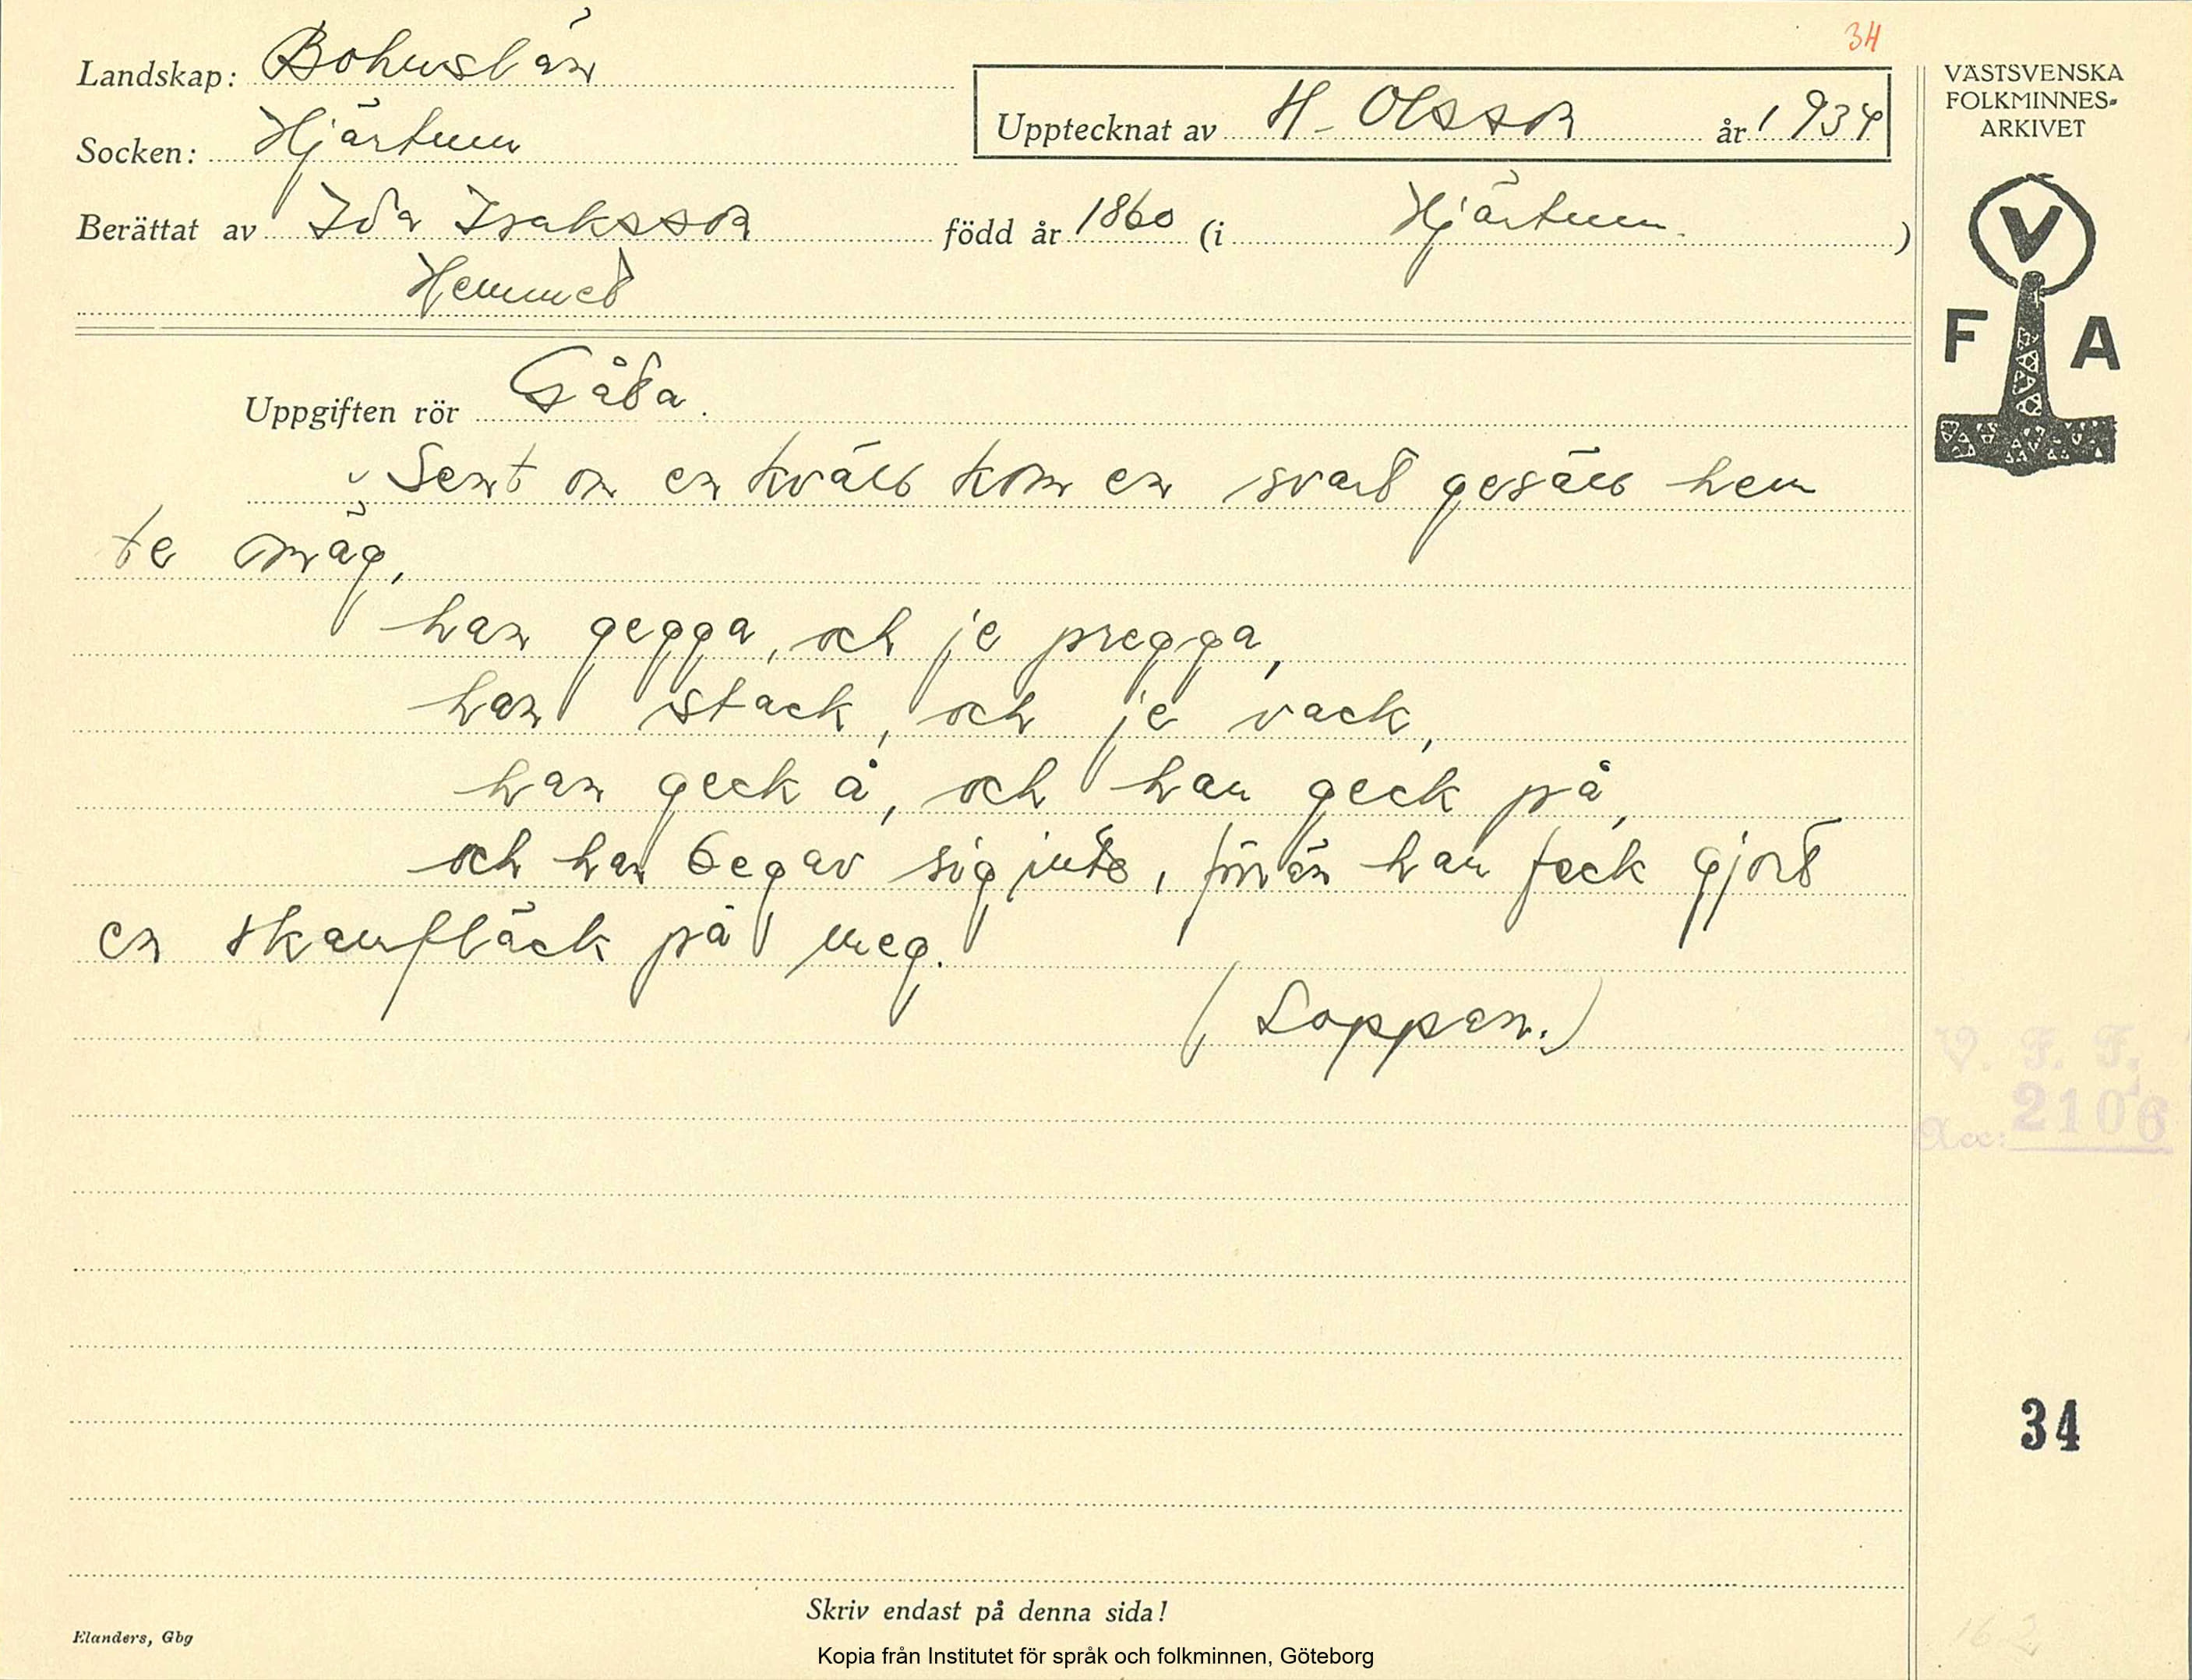 34
Landskap: Bohuslän
Socken: Hjärtum
Upptecknat av H. Olsson år 1934
Berättat av Ida Isaksson född år 1860 (i Hjärtum.)
Hemmet
VÄSTSVENSKA
FOLKMINNES-
ARKIVET
V
F A
Uppgiften rör Gåta.
Sent om en kväll kom en svart gesäll hem
te mäg,
han gegga, och je pregga,
han stack, och je vack,
han geck å, och han geck på,
och han begav sig inte, förrän han feck gjort
en skamfläck på meg.
(Loppan.)
V. F. F.
Acc: 2106
34
Skriv endast på denna sida!
Elanders, Gbg
Kopia från Institutet för språk och folkminnen, Göteborg